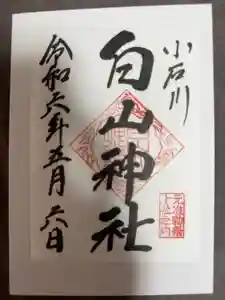 小石川
白山神社
令和六年五月六日